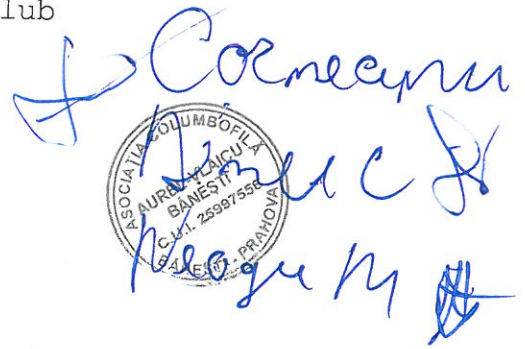 lub
Corneanu
ASOCIAȚIA COLUMBOFILĂ
AUREL VLAICU
BĂNEȘTI
C.U.I. 25997558
BĂNEȘTI - PRAHOVA
C
Neagu M